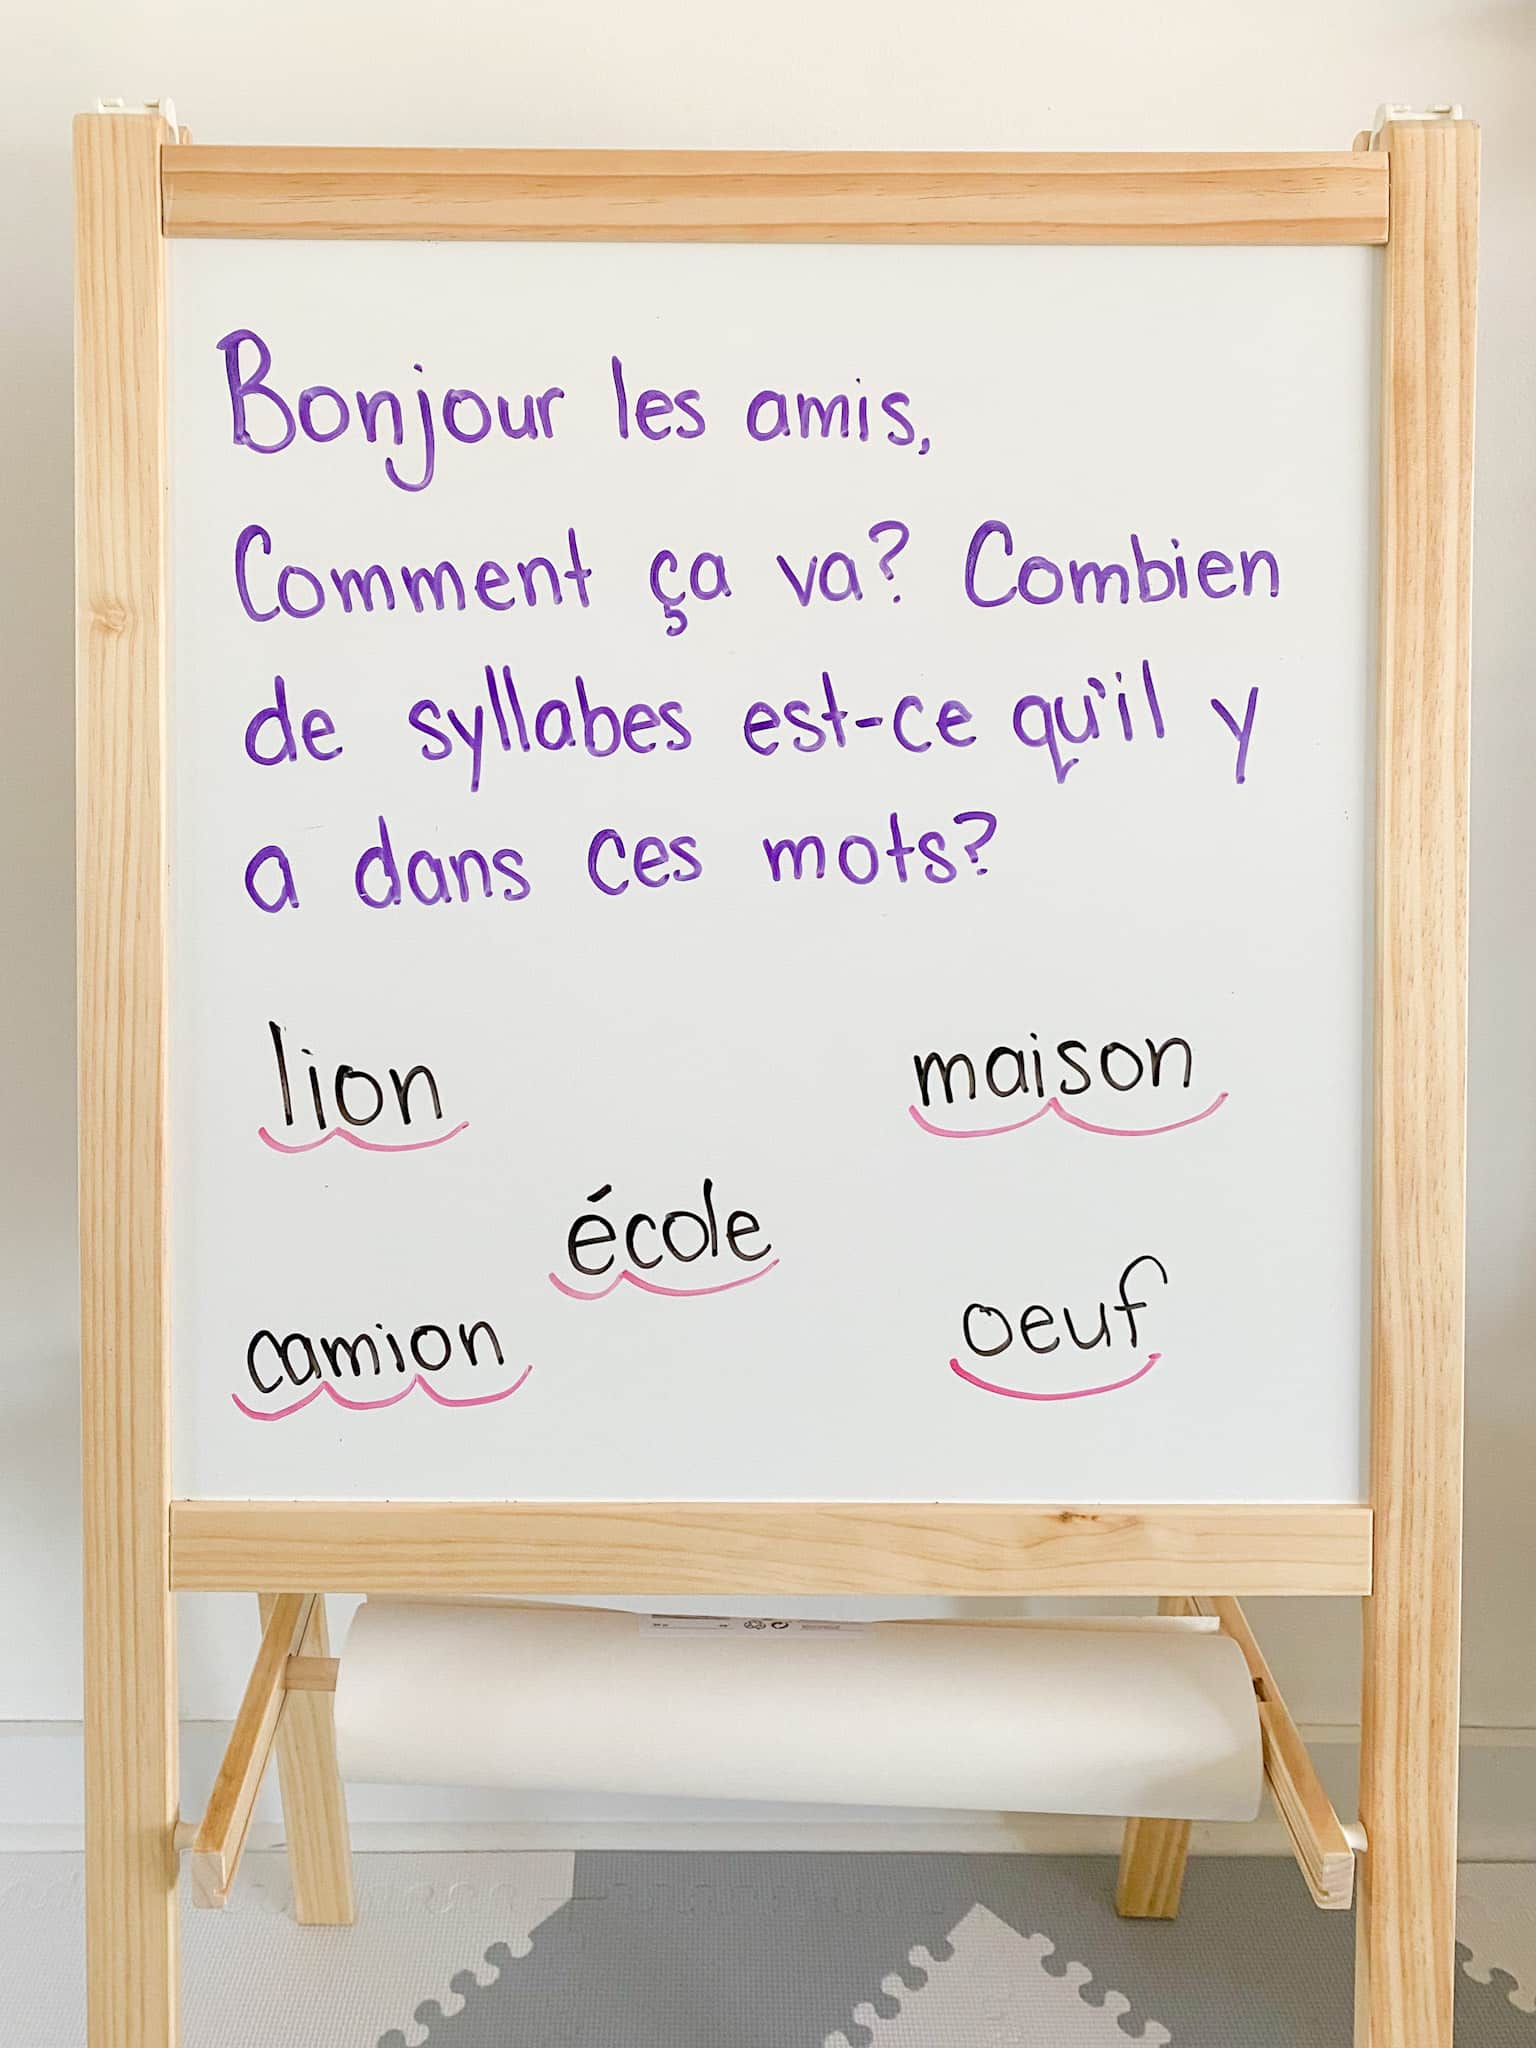 Bonjour les amis,
Comment ça va? Combien
de syllabes est-ce qu'il y
a dans ces mots?
lion
maison
école
camion
oeuf